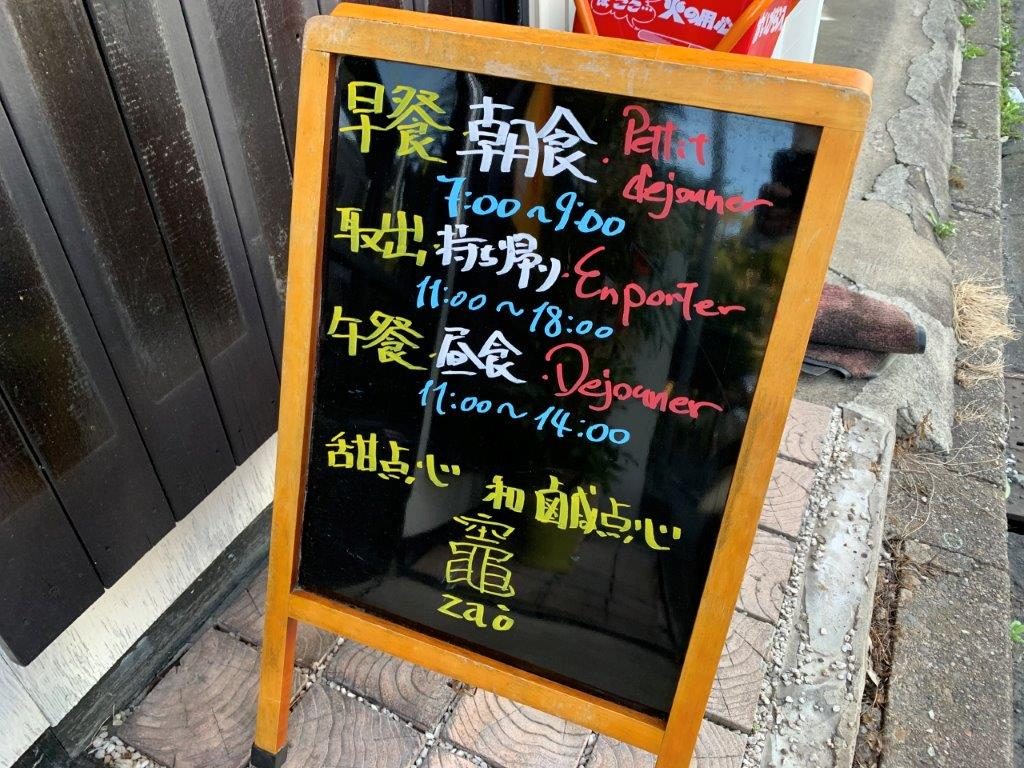 火の用心
早餐 朝食・Pettit
dejouner
7:00~9:00
取出 持ち帰り・Enporter
11:00~18:00
午餐・昼食・Dejouner
11:00~14:00
甜点心 和 鹹点心
竈
zaò